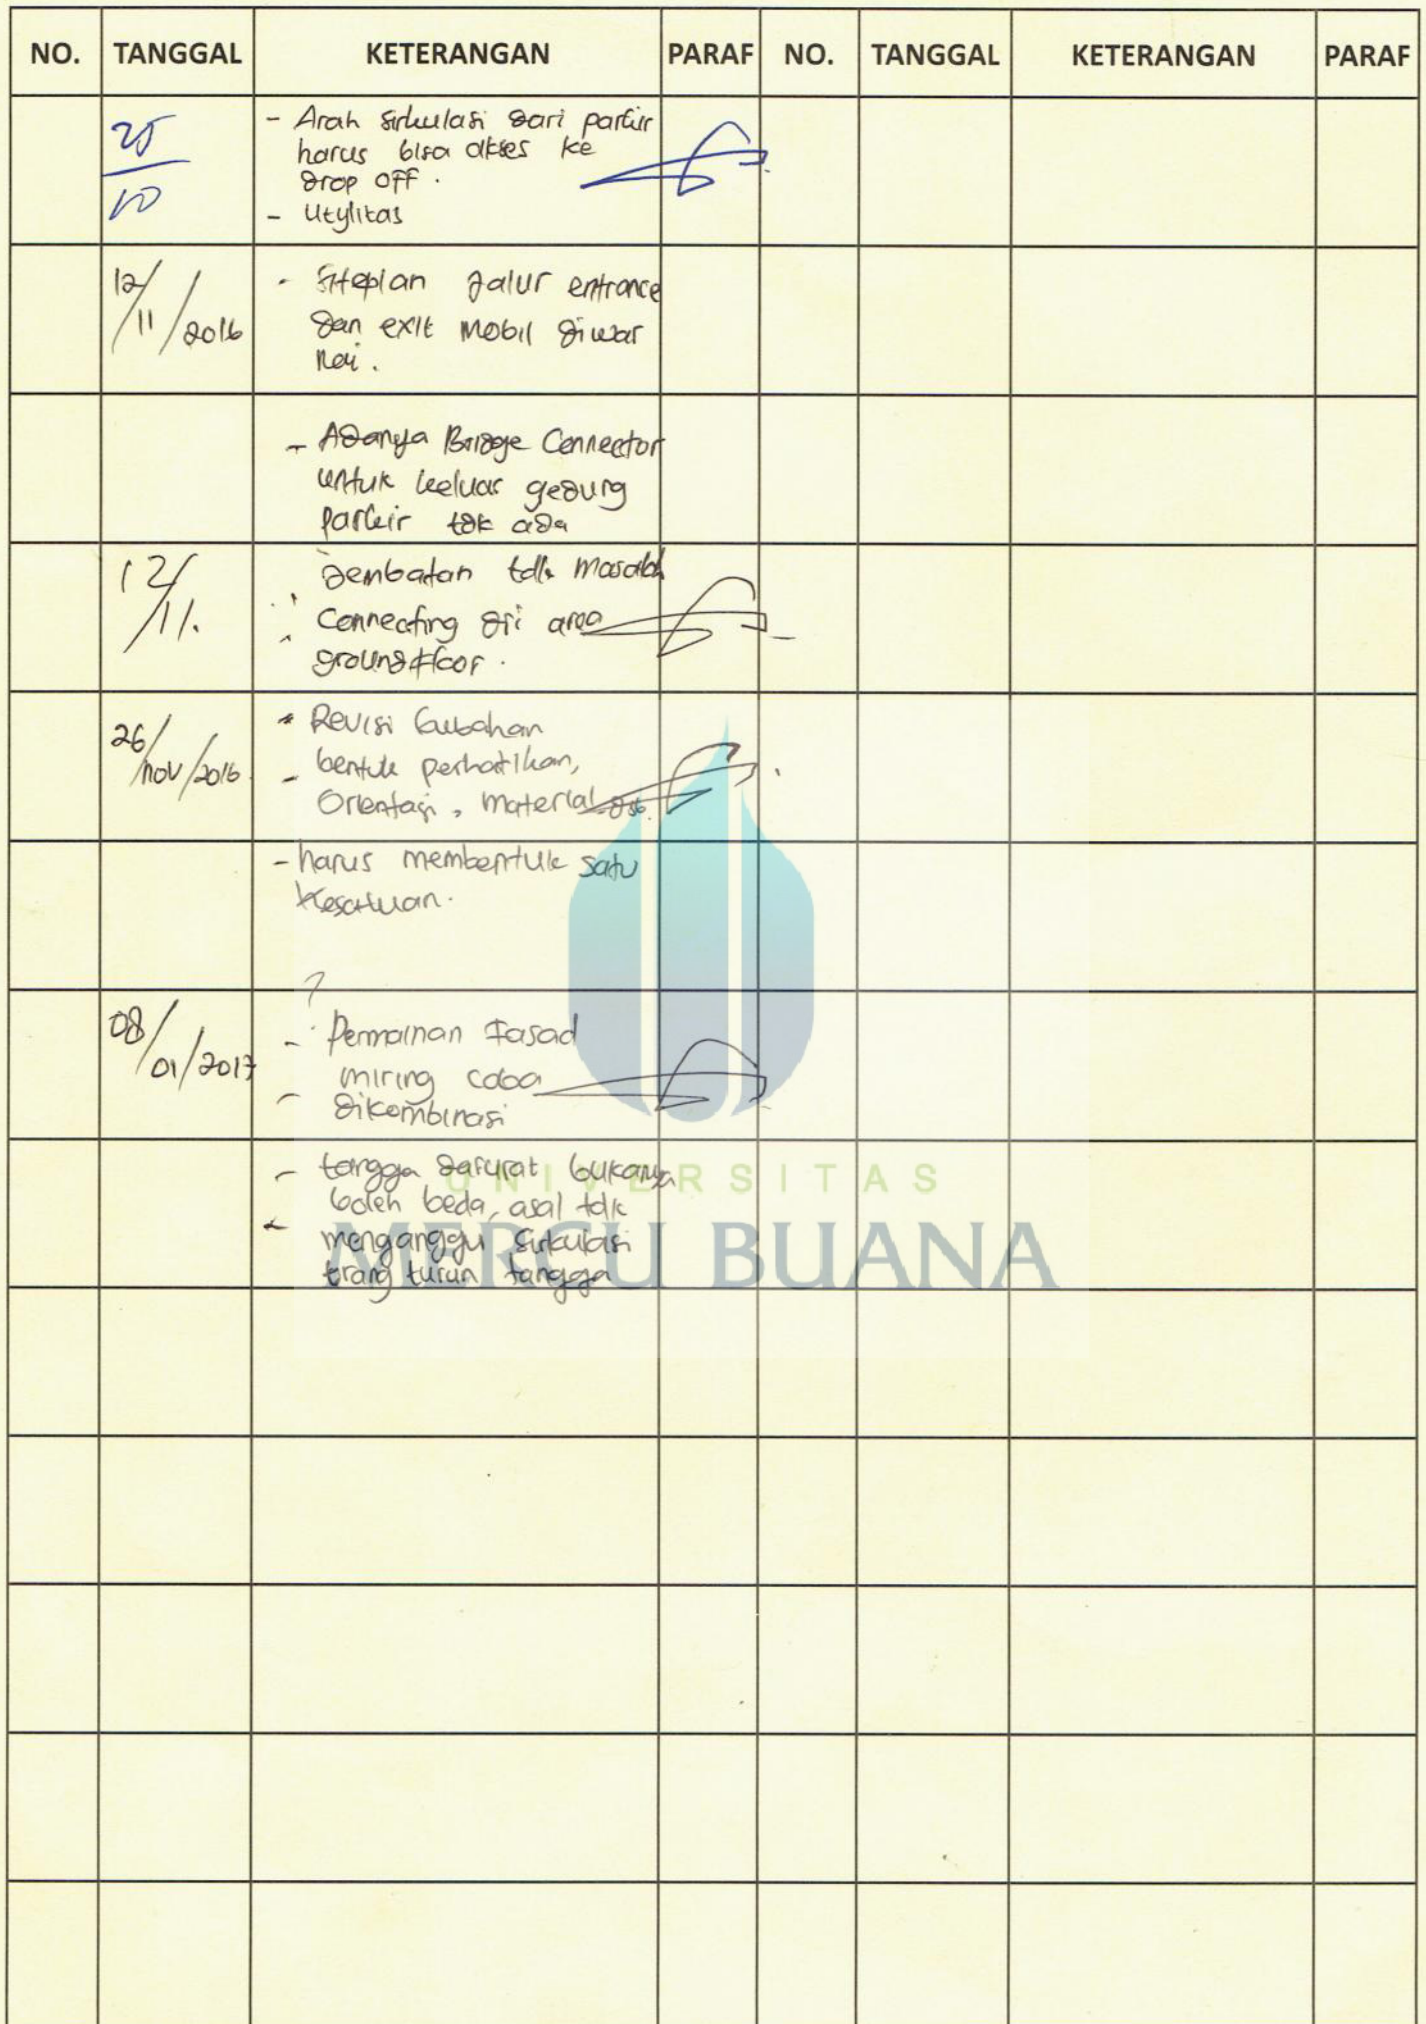 NO. TANGGAL KETERANGAN PARAF NO. TANGGAL KETERANGAN PARAF
25/10
- Arah sirkulasi dari parkir
harus bisa akses ke
drop off.
- Utylitas
12/11/2016
- Siteplan jalur entrance
dan exit mobil diwar
nai.
- Adanya Bridge Connector
untuk keluar gedung
parkir tdk ada
12/11.
Jembatan tdk masalah
Connecting dri area
groundfloor.
26/nov/2016
* Revisi Gubahan
- bentuk perhatikan,
Orientasi, material dsb.
- harus membentuk satu
kesatuan.
08/01/2017
- Permainan Fasad
miring coba
- dikombinasi
- tangga darurat bukanya
boleh beda, asal tdk
- menganggu sirkulasi
turun tangga
UNIVERSITAS
MERCU BUANA